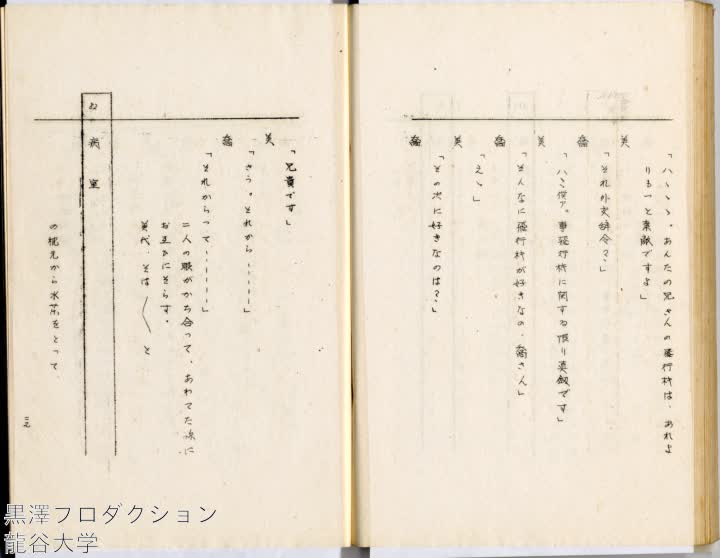 「ハヽヽヽ。あんたの兄さんの飛行机は、あれよ
りもっと素敵ですよ」
美
「それ外交辞令？」
喬
「ハヽ僕ァ。事飛行机に関する限り真剣です」
美
「そんなに飛行机が好きなの、喬さん」
喬
「えゝ」
美
「その次に好きなのは？」
喬
「兄貴です」
美
「さう。それから……」
喬
「それからって……」
二人の眼がかち合って、あわてた様に
お互ひにそらす。
美代、そは〱と
病室
の枕元から水筒をとって
黒澤プロダクション
龍谷大学